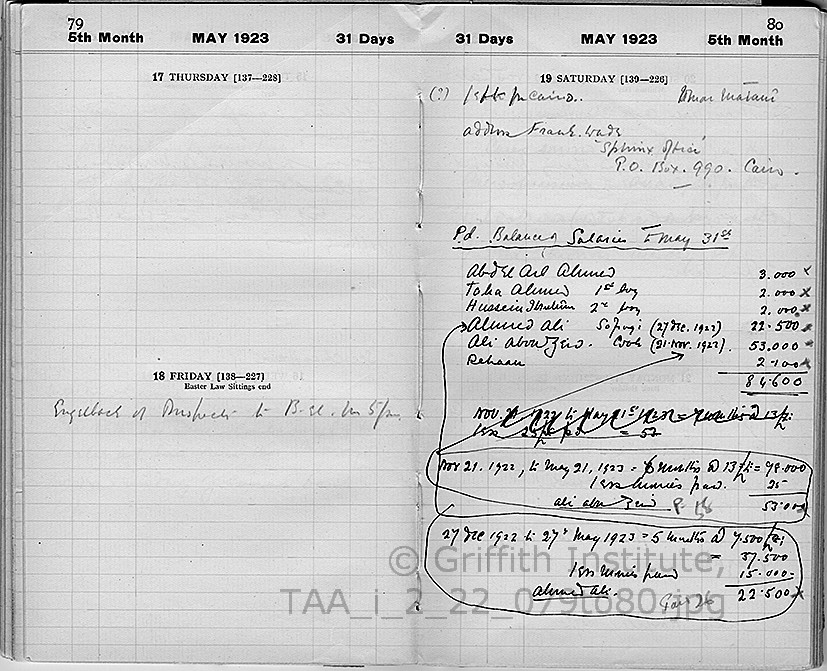 79
5th Month MAY 1923 31 Days
17 THURSDAY [137—228]
18 FRIDAY [138—227]
Easter Law Sittings end
to B. el. M 5/
80
31 Days MAY 1923 5th Month
19 SATURDAY [139—226]
(?) left for Cairo..
address Frank. Wade
"Sphinx Office"
P.O. Box. 990. Cairo.
Pd. Balance of Salaries to May 31st
Abd El Aal Ahmed 3.000 x
Taha Ahmed 1st boy 2.000 x
Hussein Ibrahim 2nd boy 2.000 x
Ahmed Ali Sofragi (27 Dec. 1922) 22.500 x
Ali abou Zeid. Cook (21. Nov. 1922). 53.000 x
Rehaan 2.100 x
84.600
Nov. 21 1922 to May 1923 = months @ 13
less 25 pd = 53
Nov 21. 1922, to May 21, 1923 = 6 months @ 13 = 78.000
less monies paid. 25
Ali abu Zeid P. 53.000 x
27 Dec 1922 to 27th May 1923 = 5 months @ 7.500
= 37.500
less monies paid 15.000
Ahmed Ali. 22.500 x
Page 26
© Griffith Institute,
TAA_i_2_22_079to80.jpg